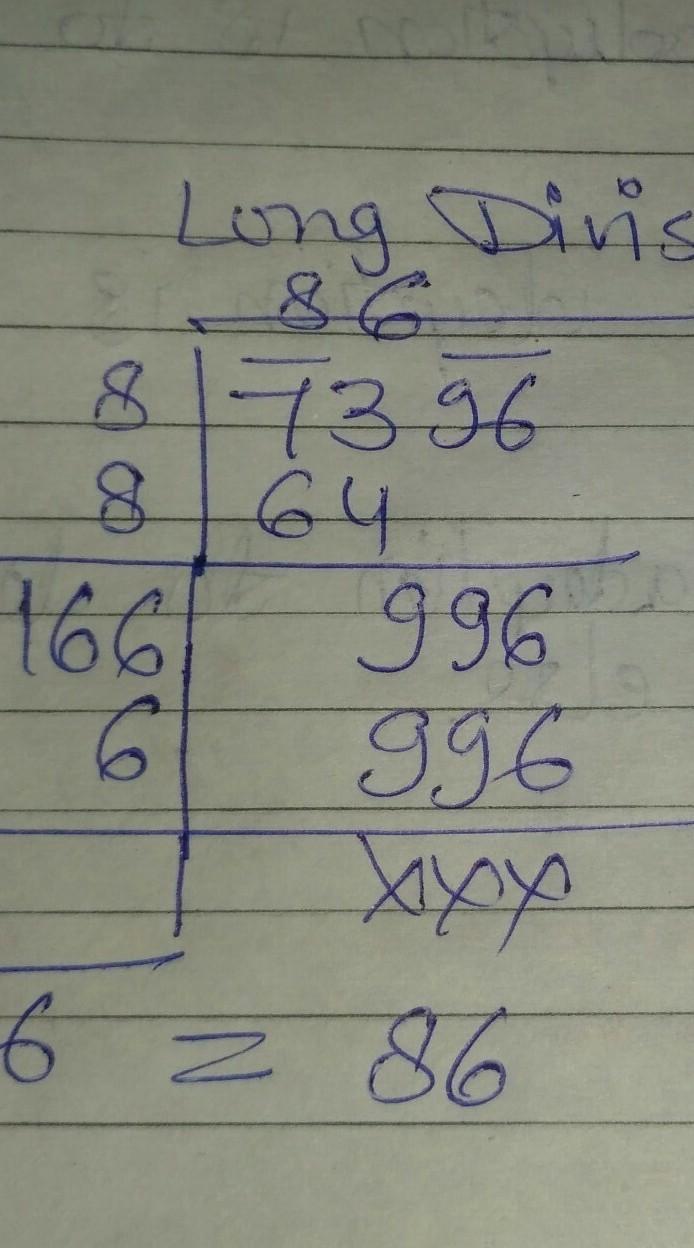 Long Divis
86
8 7396
8 64
166 996
6 996
xxx
6 = 86